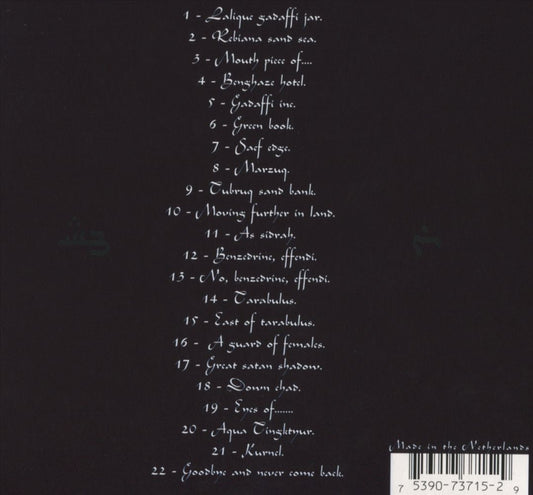 1 - Lalique gadaffi jar.
2 - Rebiana sand sea.
3 - Mouth piece of....
4 - Benghaze hotel.
5 - Gadaffi inc.
6 - Green book.
7 - Saef edge.
8 - Marzuq.
9 - Tubruq sand bank.
10 - Moving further in land.
11 - As sidrah.
12 - Benzedrine, effendi.
13 - No, benzedrine, effendi.
14 - Tarabulus.
15 - East of tarabulus.
16 - A guard of females.
17 - Great satan shadow.
18 - Down chad.
19 - Eyes of.......
20 - Aqua Tingktnur.
21 - Kurnel.
22 - Goodbye and never come back.
Made in the Netherlands
7 53907-3715-2 9